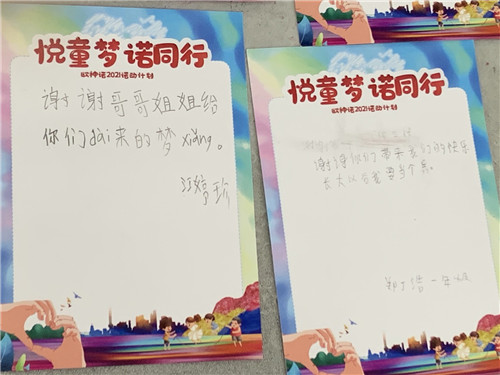 悦童梦 诺同行
欧神诺2021诺动计划
谢谢哥哥姐姐给
你们dai来的梦xiang。
江婷珍
悦童梦 诺同行
欧神诺2021诺动计划
谢谢你们带来我们的快乐
长大以后我要